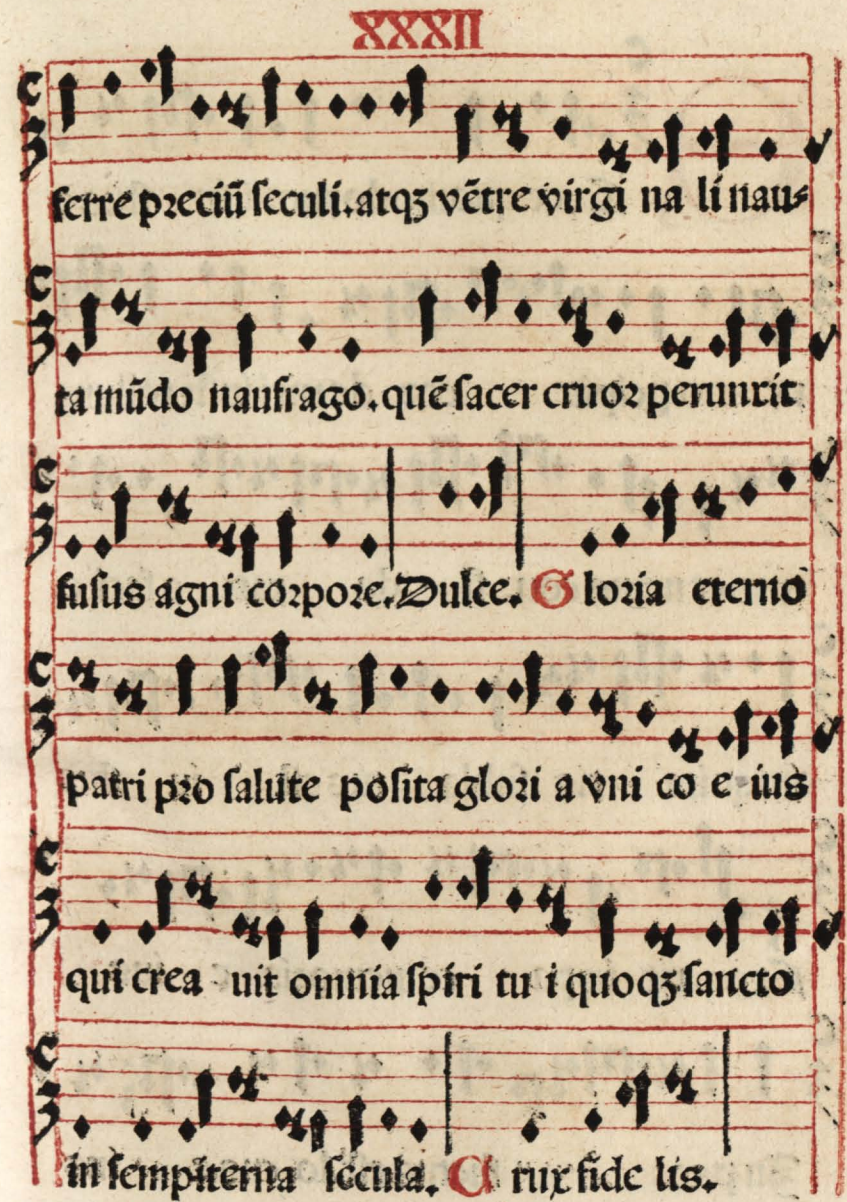 XXXII
ferre preciū seculi. atqꝫ vētre virgi na li nau⸗
ta mūdo naufrago. quē sacer cruor perunxit
fusus agni corpore. Dulce. G loria eterno
patri pro salute posita glori a vni co e ius
qui crea uit omnia spiri tu i quoqꝫ sancto
in sempiterna secula. C rux fide lis.